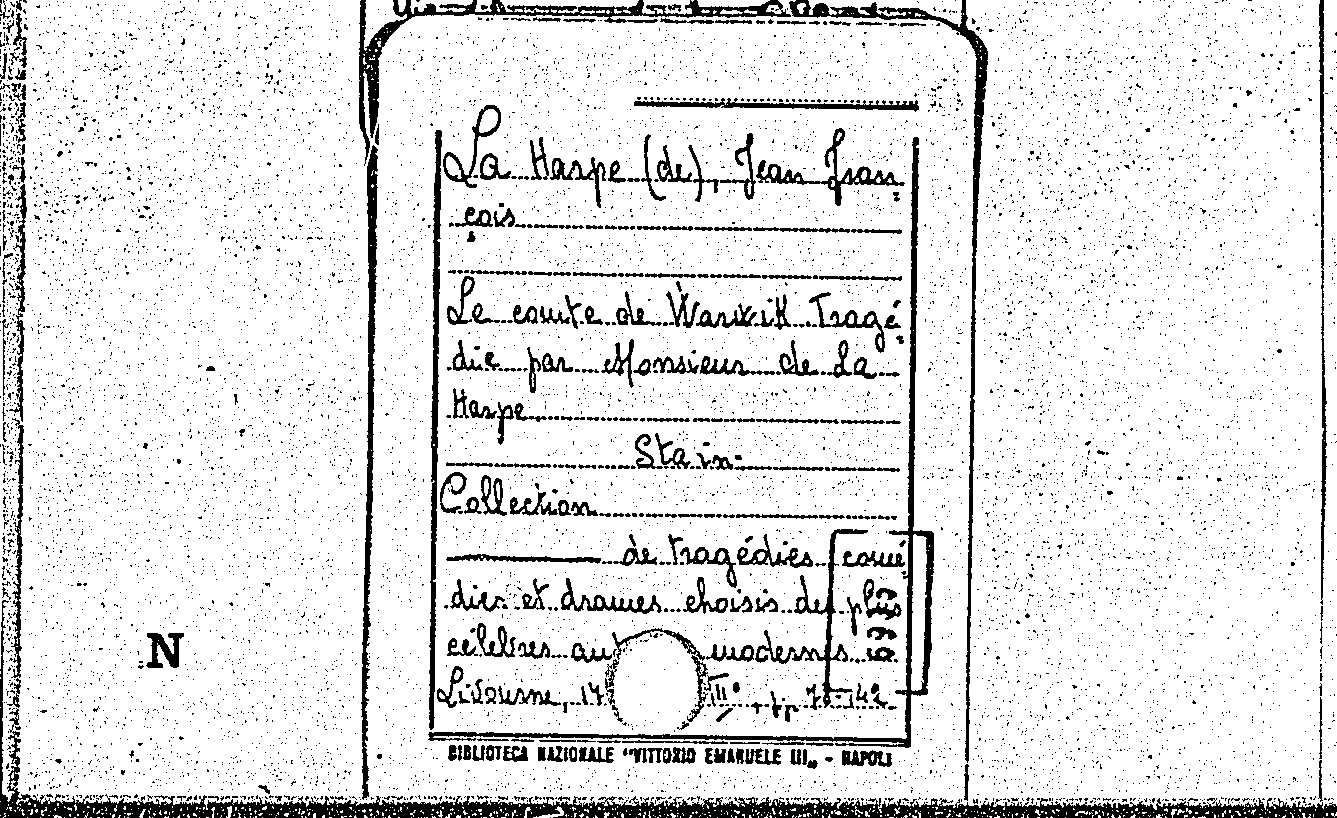 La Harpe (de), Jean Fran
çois
Le comte de Warwik Tragé
die par Monsieur de La
Harpe
Sta in:
Collection
de tragédies comé
dies et drames choisis des plus
célèbres modernes
Livourne, 17 II°, pp
BIBLIOTECA NAZIONALE "VITTORIO EMANUELE III„ - NAPOLI
N